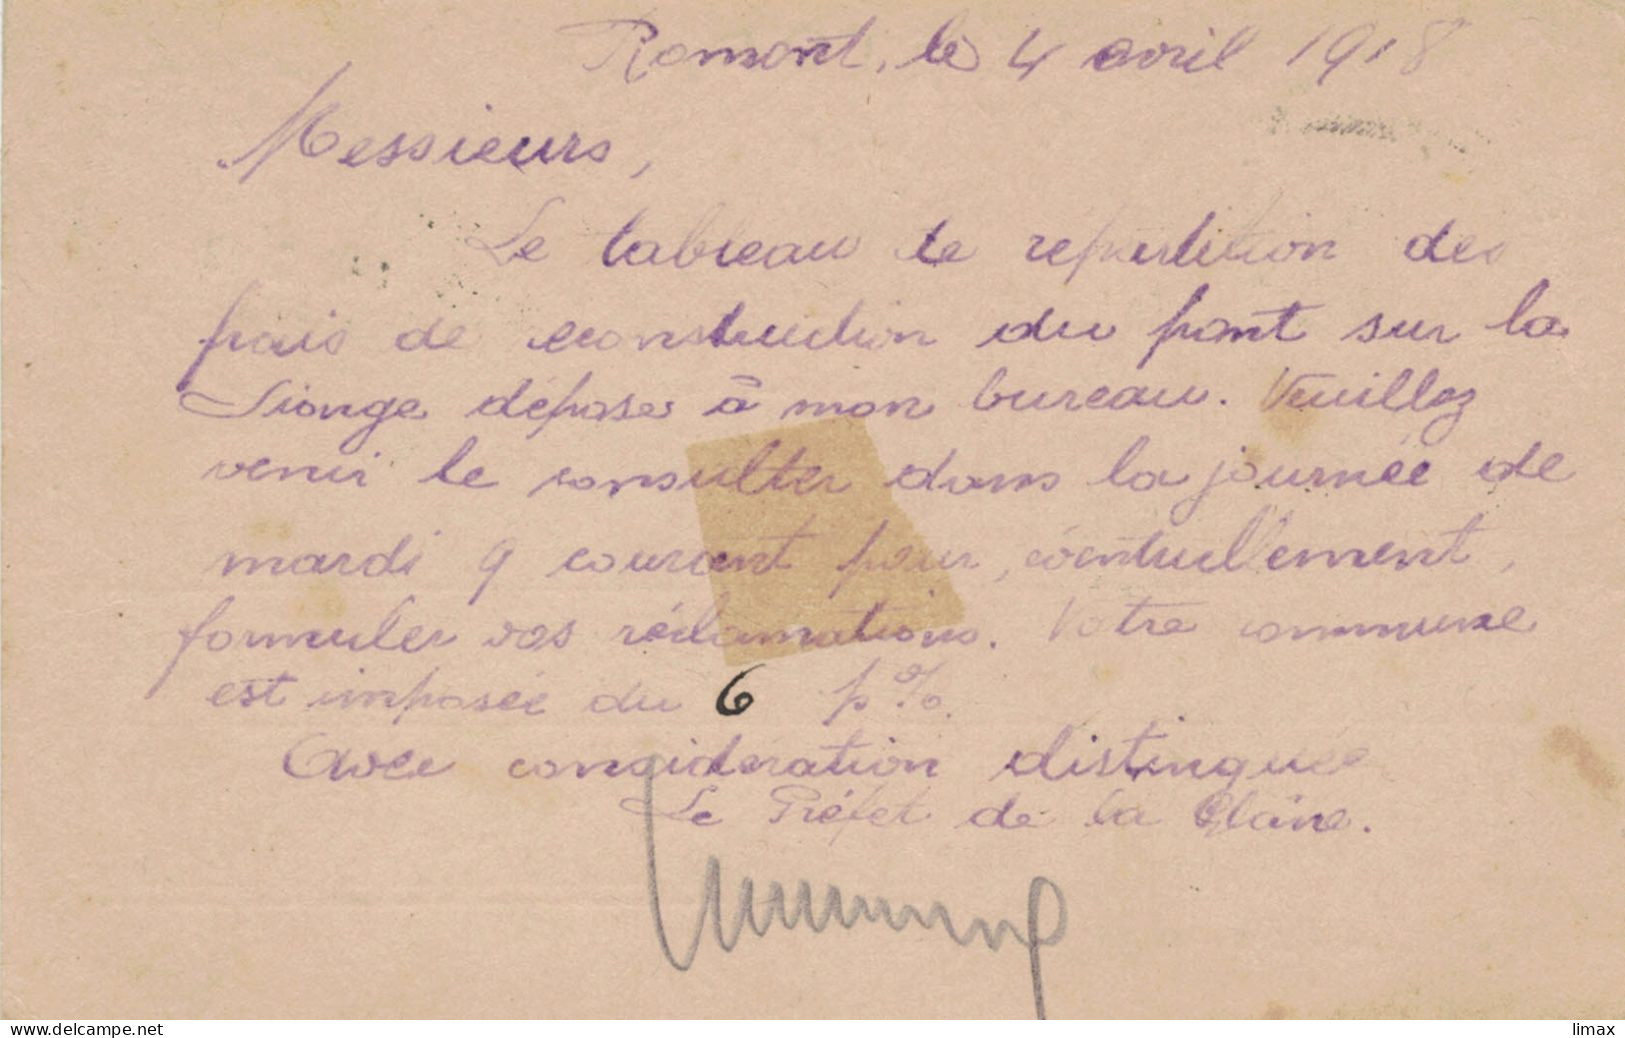 Romont, le 4 avril 1918
Messieurs,
Le tableau de répartition des
frais de construction du pont sur la
Sionge déposé à mon bureau. Veuillez
venir le consulter dans la journée de
mardi 9 courant pour, éventuellement,
formuler vos réclamations. Votre commune
est imposée du 6 p%.
Avec considération distinguée
Le Préfet de la Glâne.
www.delcampe.net
limax